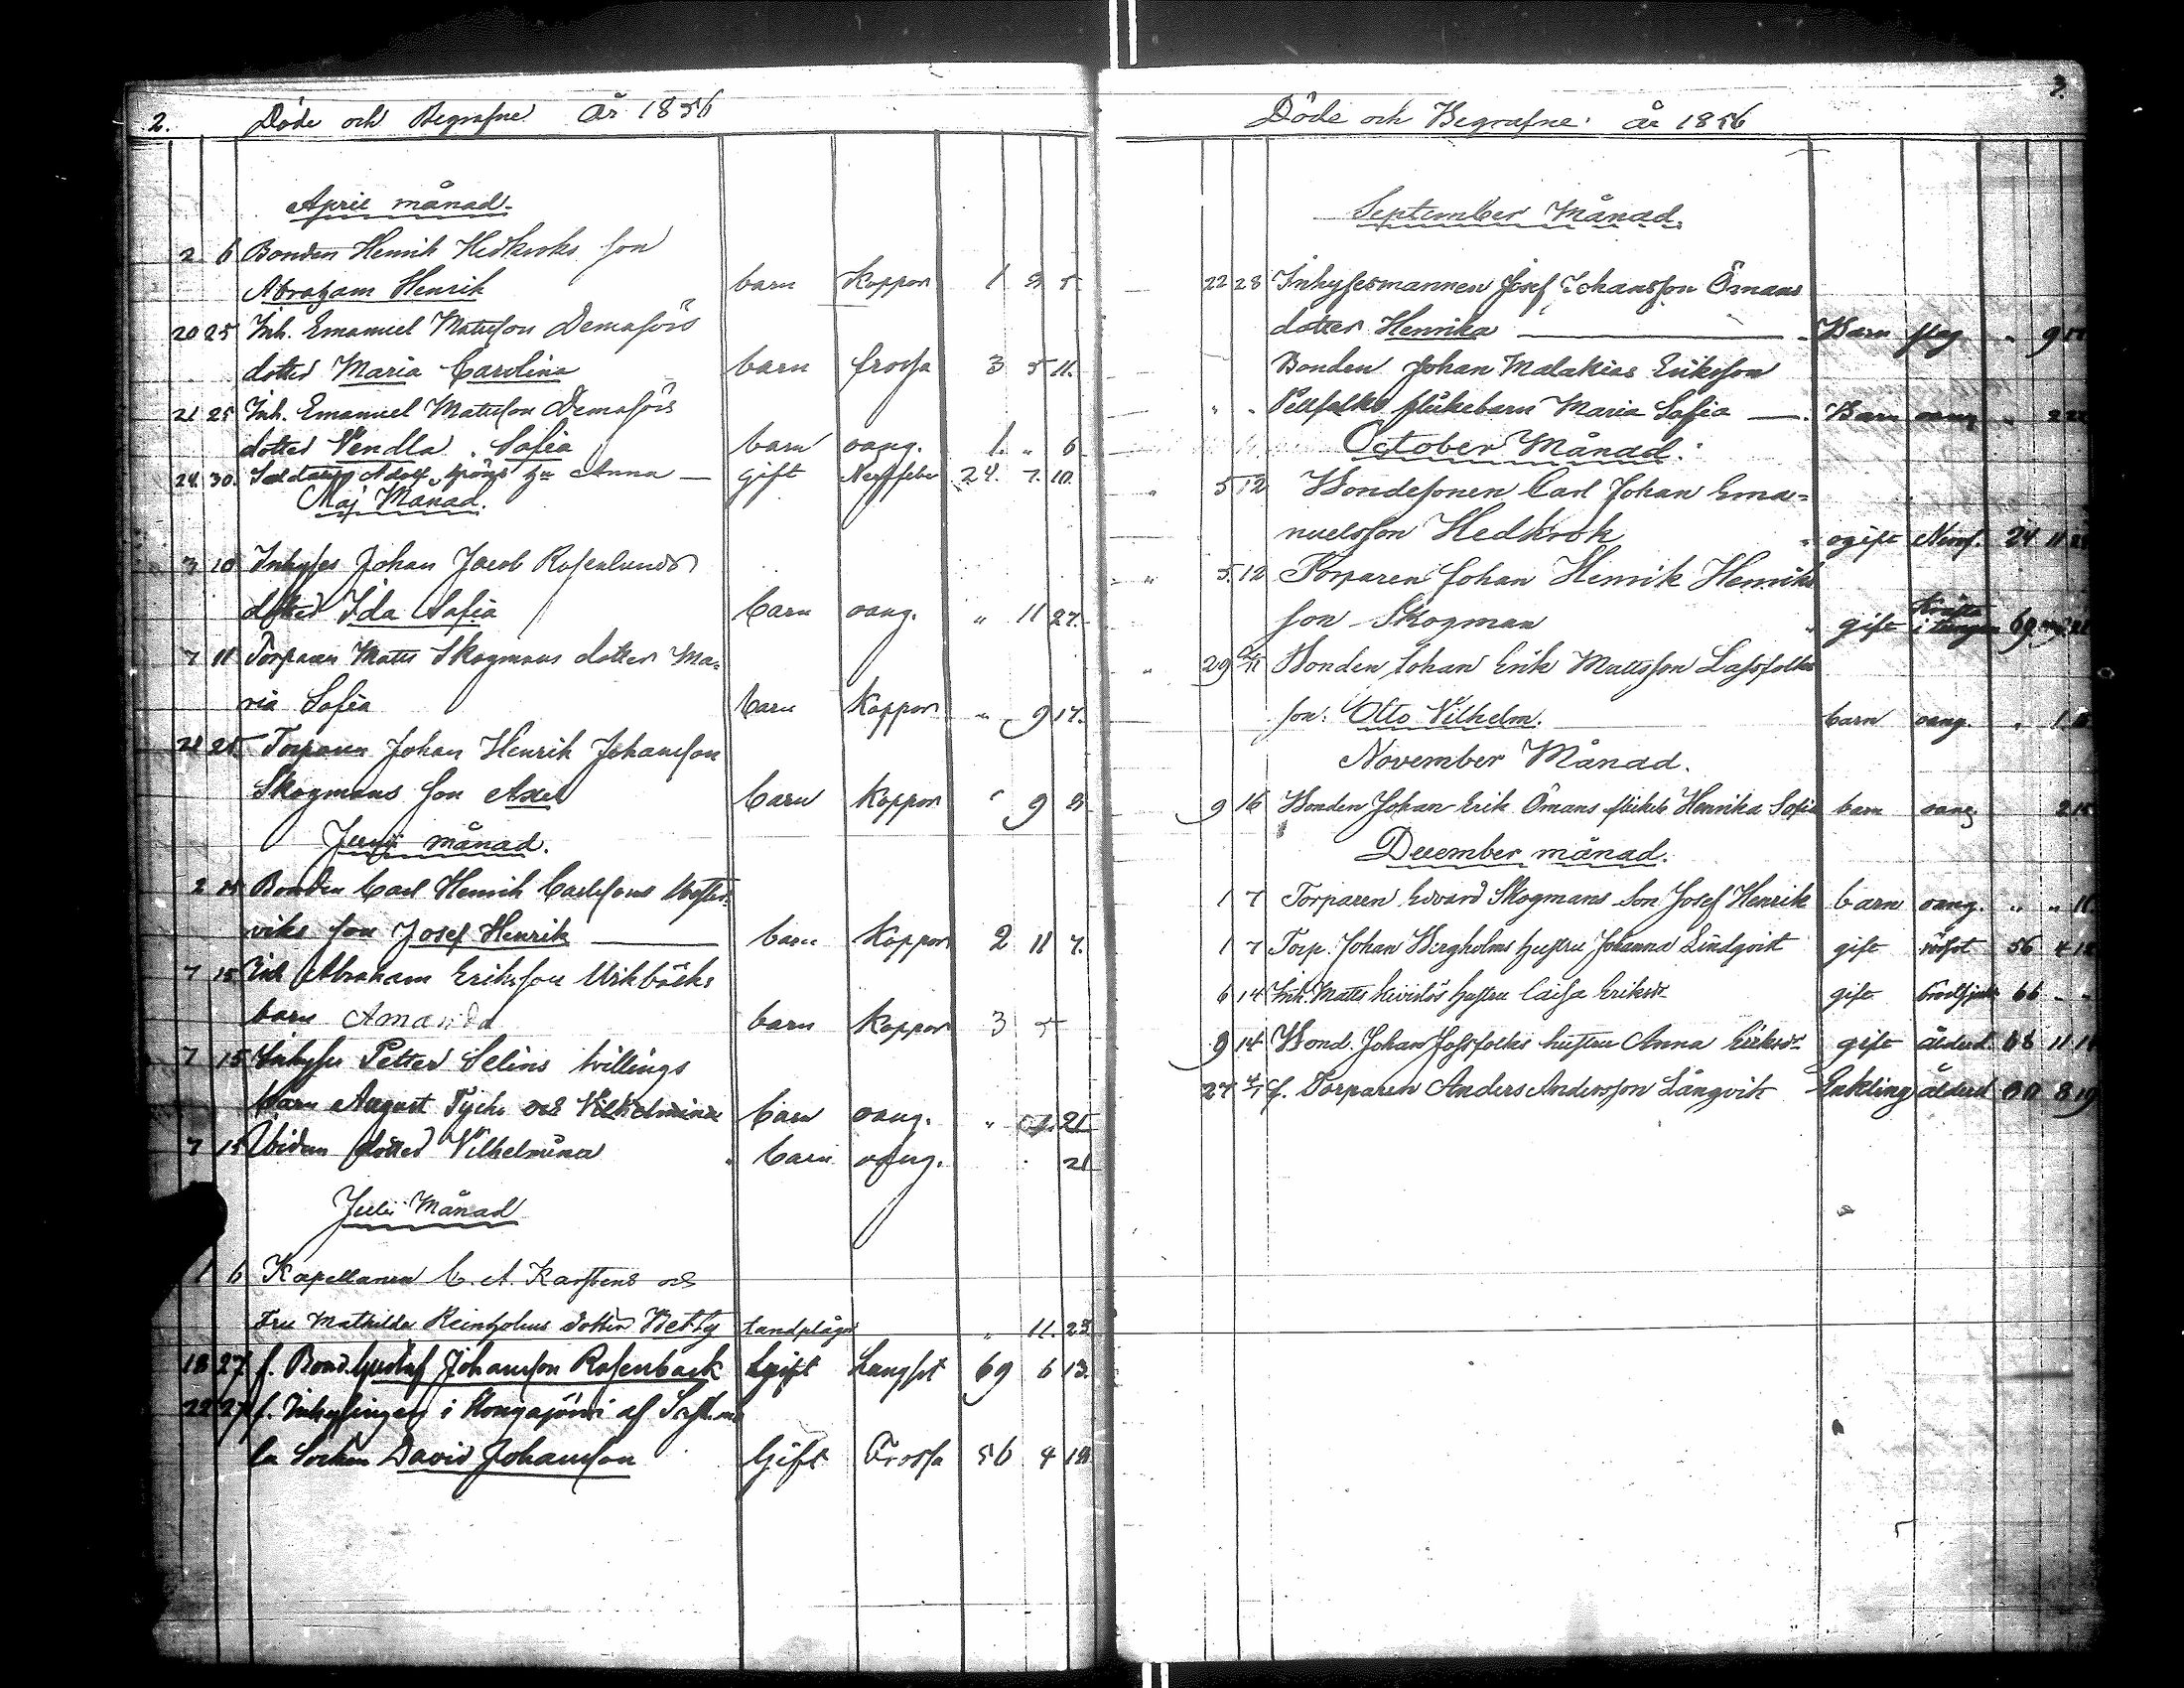 2. Döde och Begrafne År 1856
April månad.
2 6 Bonden Henrik Hedkroks son
Abraham Henrik barn Koppor 1 8 5
20 25 Inh. Emanuel Matsson Demaförs
dotter Maria Carolina barn frossa 3 5 11.
21 25 Inh. Emanuel Matsson Demaförs
dotter Vendla Sofia barn oang. 1. " 6
24 30. Adolf hu Anna — gift Nerffeber 24. 7. 10.
Maj Månad.
3 10 Inhyses Johan Jacob Rosenlunds
dotter Ida Sofia barn oang. " 11 27.
7 11 Torparen Matts Skogmans dotter Ma=
ria Sofia barn Koppor " 9 17.
21 25 Torparen Johan Henrik Johansson
Skogmans son Axel barn Koppor " 9 8
Junii månad.
2 15 Bonden Carl Henrik Carlsons Vester-
viks son Josef Henrik barn Koppor 2 11 7.
7 15 Inh Abraham Eriksson Mirbäcks
barn Amanda barn Koppor 3 5
7 15 Inhyses Petter Selins tvillings
barn August och Vilhelmina barn oang. " 21
7 15 Ibidem dotter Vilhelmina barn oang. 21
Julii Månad
1 6 Kapellanen C. A. Karstens och
Fru Mathilda Reinholms dotter Betty landplågor " 11. 23
18 27 f. Bond. Gustaf Johansson Rosenback Gift Lungsot 69 6 13.
22 27 f. Inhysingen i af
la Socken David Johansson Gift Frossa 56 4 19
3.
Döde och Begrafne. år 1856
September Månad.
22 28 Inhysesmannen Josef Johansson Ömans
dotter Henrika — Barn slag " 9
Bonden Johan Malakias Eriksson
" " Pellfolks flickebarn Maria Sofia — Barn oang " 2
October Månad.
5 12 Bondesonen Carl Johan Ema=
nuelsson Hedkrok ogift Nervf. 24 11
5. 12 Torparen Johan Henrik Henriks
son Skogman gift Kräfta i 69
29 Bonden Johan Erik Mattsson Lassfolks
son: Otto Vilhelm. barn oang. " 1.
November Månad.
9 16 Bonden Johan Erik Ömans flickeb Henrika Sofia barn oang 2
December månad.
1 7 Torparen Edvard Skogmans Son Josef Henrik barn oang. " " 11
1 7 Torp. Johan Bergholms hustru Johanna Lindqvist gift 56 4 12
6 14 Inh. Matts hustru Caisa Eriksdr gift 66 - -
9 14 Bond. Johan Jossfolks hustru Anna Eriksdr gift ålderd. 68 11
27 4/1 f. Torparen Anders Andersson Långvik Enkling ålderd 8 19